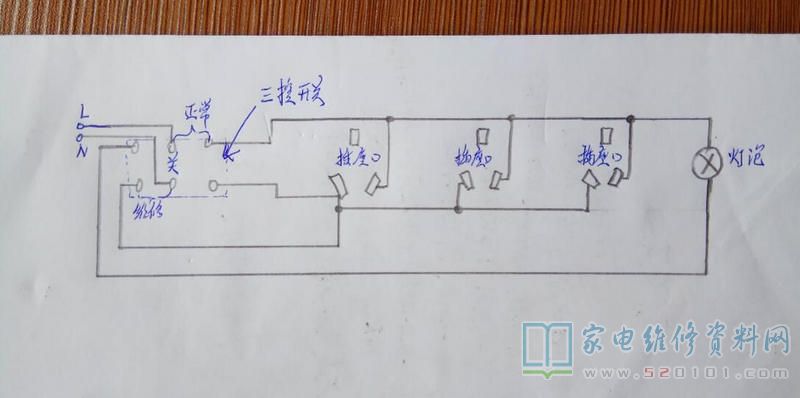 L
N
正常
三控开关
关
维修
插座
插座
插座
灯泡
家电维修资料网
www.520101.com